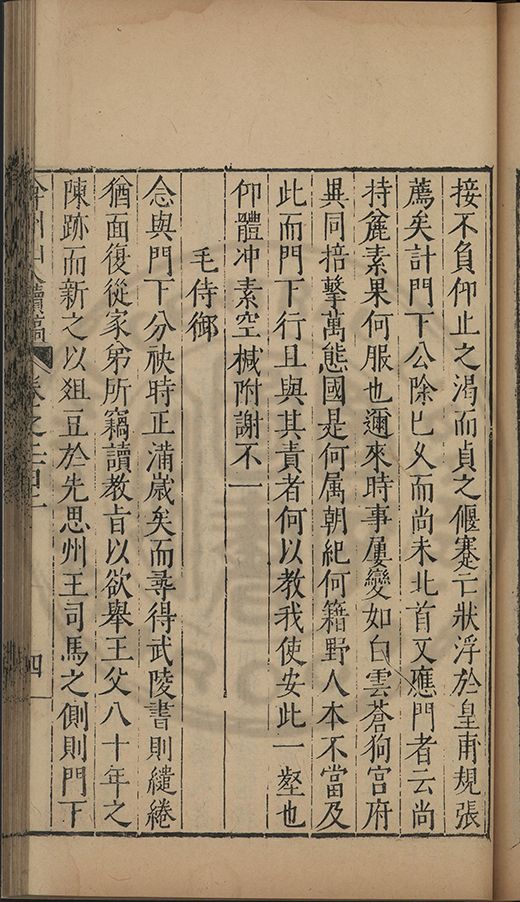 接不負仰止之渴而貞之偃蹇亡狀浮於皇甫規張
薦矣計門下公除已乆而尚未北首文應門者云尚
持麄素果何服也邇來時事屢變如白雲蒼狗宮府
異同掊擊萬態國是何属朝紀何籍野人本不當及
此而門下行且與其責者何以教我使安此一壑也
仰體冲素空椷附謝不一
毛侍御
念與門下分袂時正滿歲矣而尋得武陵書則繾綣
猶面復從家弟所竊讀教㫖以欲舉王父八十年之
陳跡而新之以俎豆於先思州王司馬之側則門下
弇州山人續稿
卷之
四